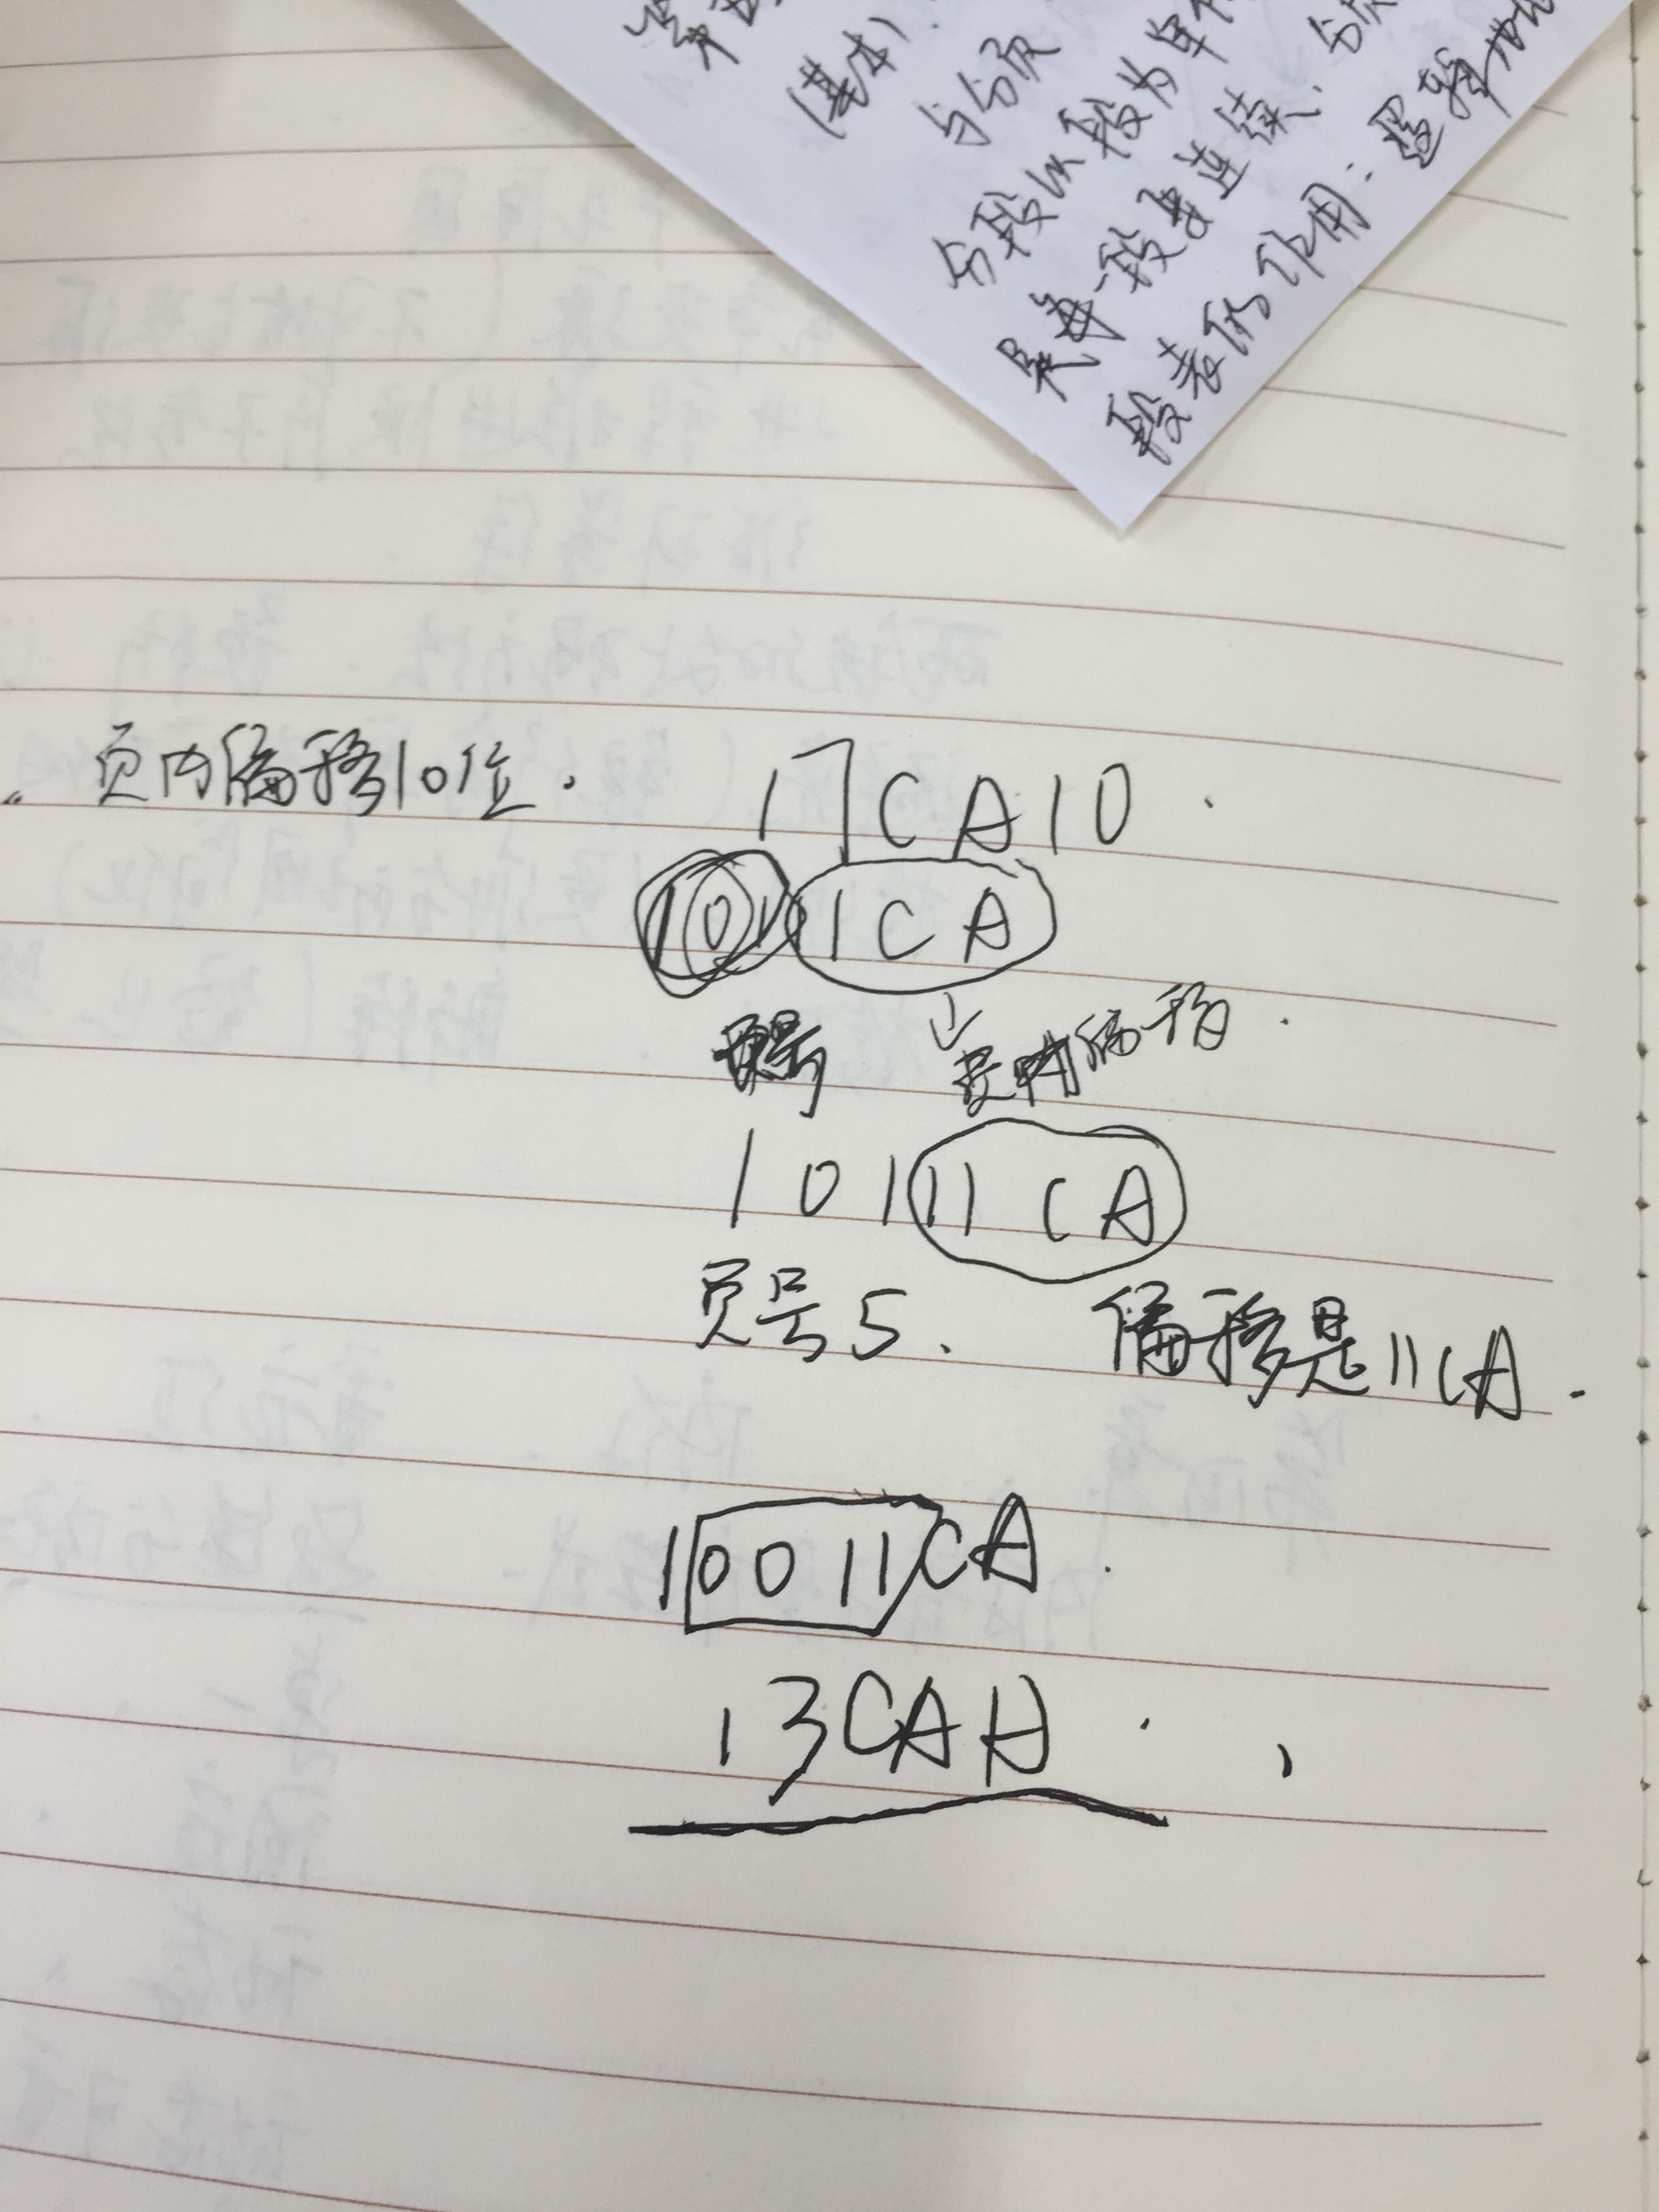 (基本)
与分页
分段以段为单
是每一段要连续.
段表的作用: 逻辑地
页内偏移10位.
17CA10
1011CA
页号
页内偏移.
10111CA
页号5. 偏移是11CA.
10011CA.
13CAH